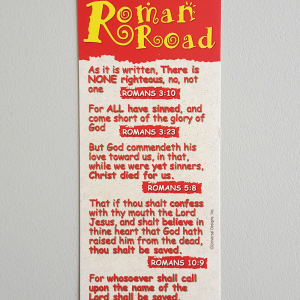 Roman
Road
As it is written, There is
NONE righteous, no, not
one
ROMANS 3:10
For ALL have sinned, and
come short of the glory of
God
ROMANS 3:23
But God commendeth his
love toward us, in that,
while we were yet sinners,
Christ died for us.
ROMANS 5:8
That if thou shalt confess
with thy mouth the Lord
Jesus, and shalt believe in
thine heart that God hath
raised him from the dead,
thou shalt be saved.
ROMANS 10:9
For whosoever shall call
upon the name of the
Lord shall be saved.